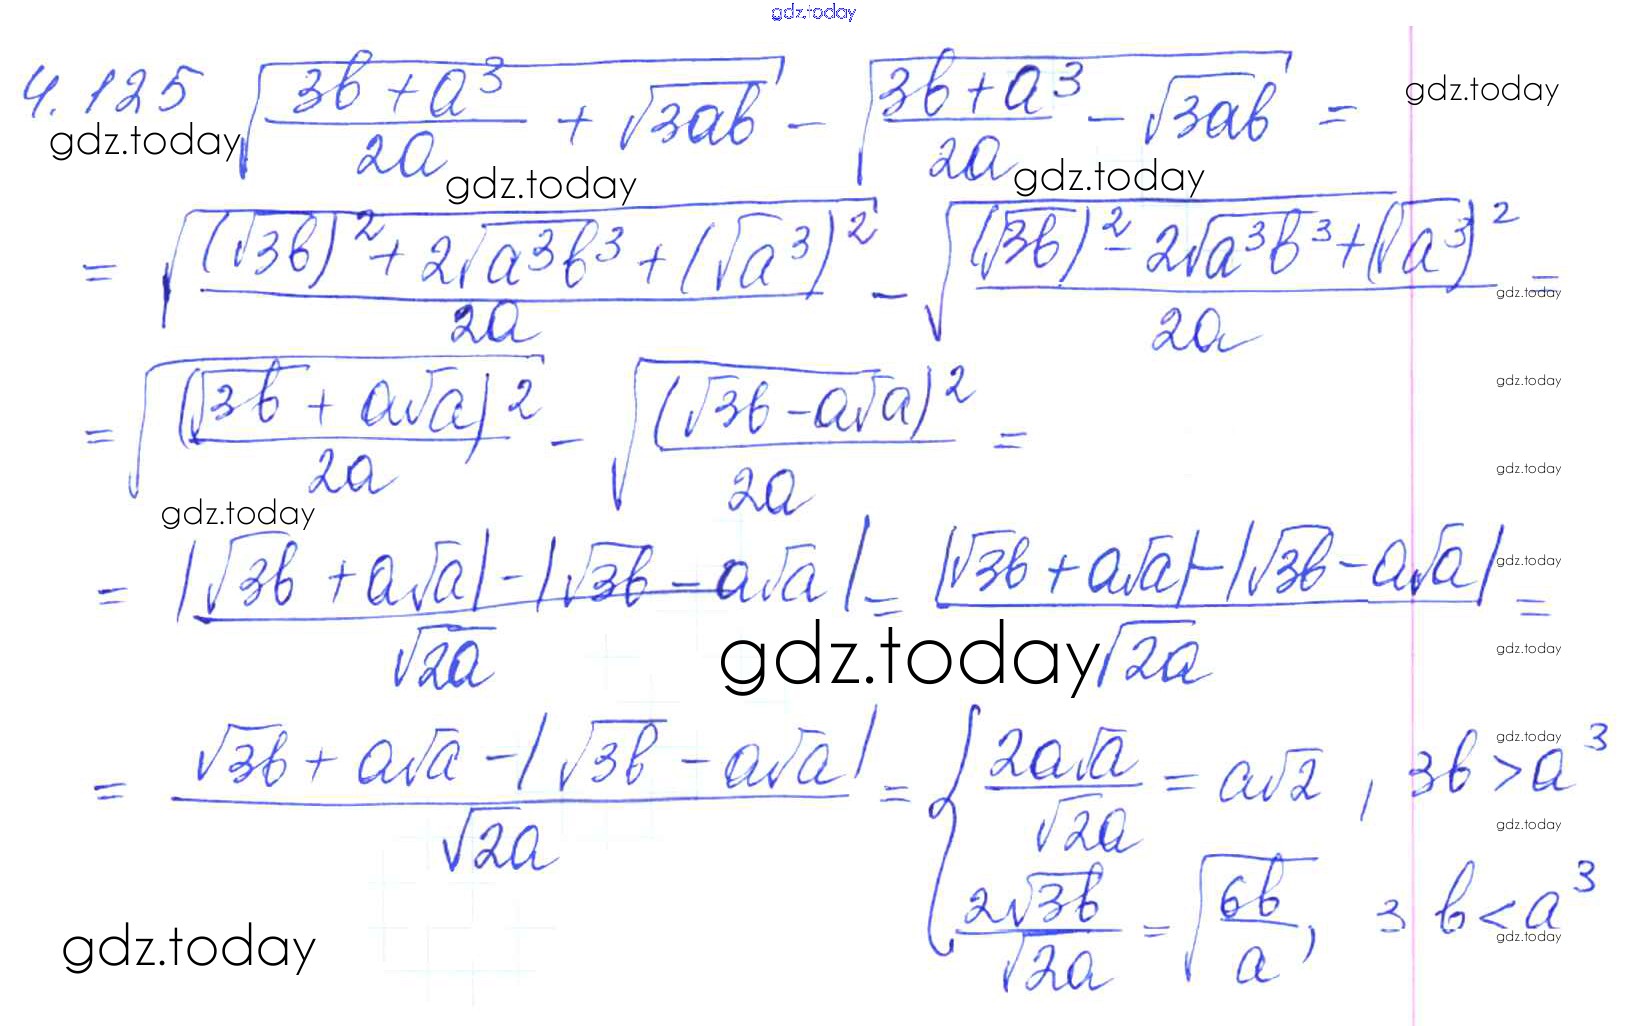 gdz.today
4.125 √((3b + a³)/(2a) + √(3ab)) − √((3b + a³)/(2a) − √(3ab)) =
gdz.today gdz.today gdz.today gdz.today
= √(((√3b)² + 2√(a³b³) + (√a³)²)/(2a)) − √(((√3b)² − 2√(a³b³) + (√a³)²)/(2a)) =
gdz.today
gdz.today
= √((√3b + a√a)²/(2a)) − √((√3b − a√a)²/(2a)) =
gdz.today
gdz.today
= (|√3b + a√a| − |√3b − a√a|)/√2a = (|√3b + a√a| − |√3b − a√a|)/√2a =
gdz.today
gdz.today gdz.today
= (√3b + a√a − |√3b − a√a|)/√2a = { 2a√a/√2a = a√2, 3b > a³
gdz.today
gdz.today
2√3b/√2a = √(6b/a), 3b < a³
gdz.today
gdz.today